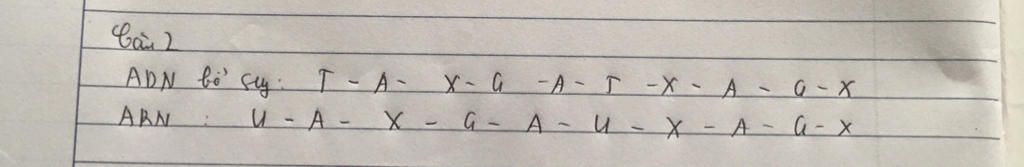 Câu 2
ADN bổ sug: T - A - X - G - A - T - X - A - G - X
ARN : U - A - X - G - A - U - X - A - G - X